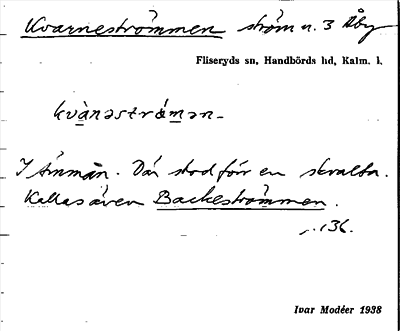 Kvarneströmmen ström n. 3 Åby
Fliseryds sn, Handbörds hd, Kalm. l.
kvànəstrǿmən
I Åmmån. Där stod förr en skvalta.
Kallas även Backeströmmen.
s. 136.
Ivar Modéer 1938